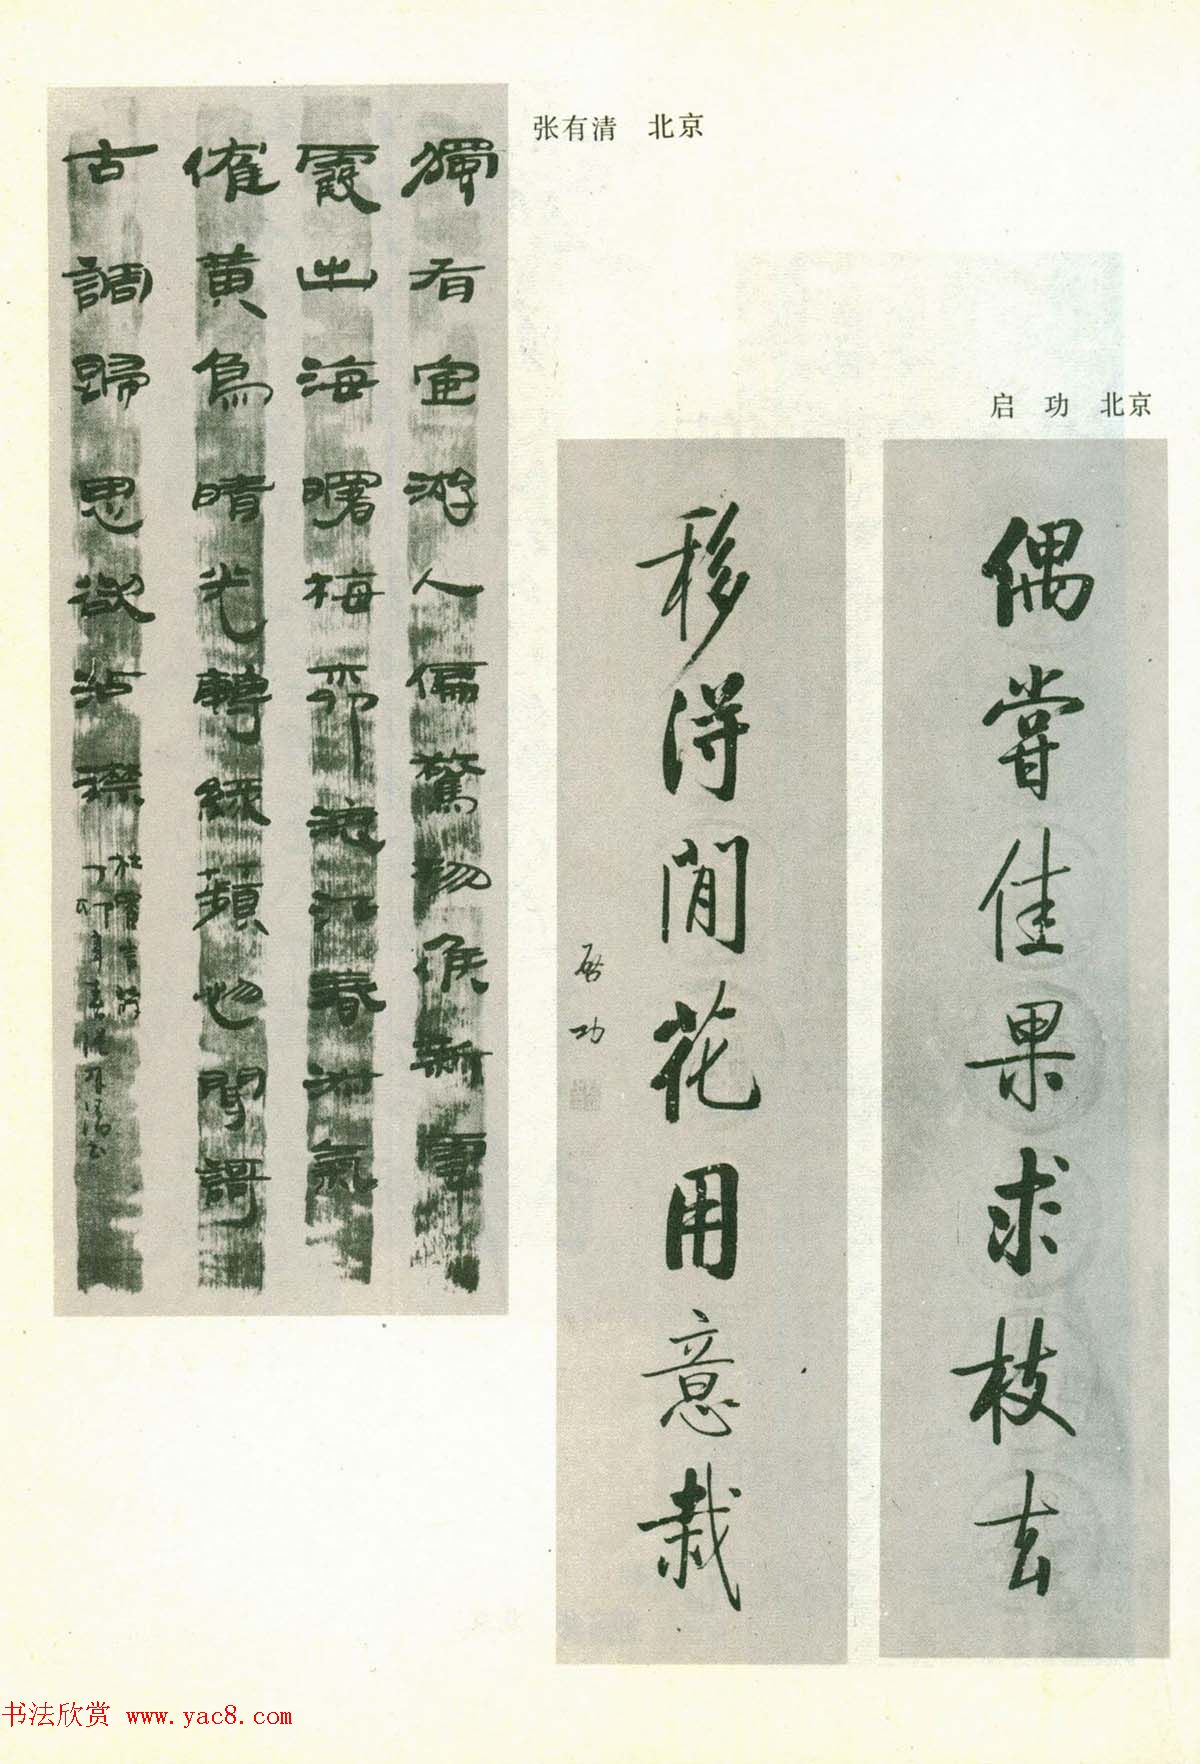 张有清　北京
獨有宦游人偏驚物候新雲
霞出海曙梅柳渡江春淑氣
催黄鳥晴光轉綠蘋忽聞謌
古調歸思欲沾襟
杜審言詩
丁卯年春
启　功　北京
偶嘗佳果求枝去
移得閒花用意栽
啓功
书法欣赏 www.yac8.com